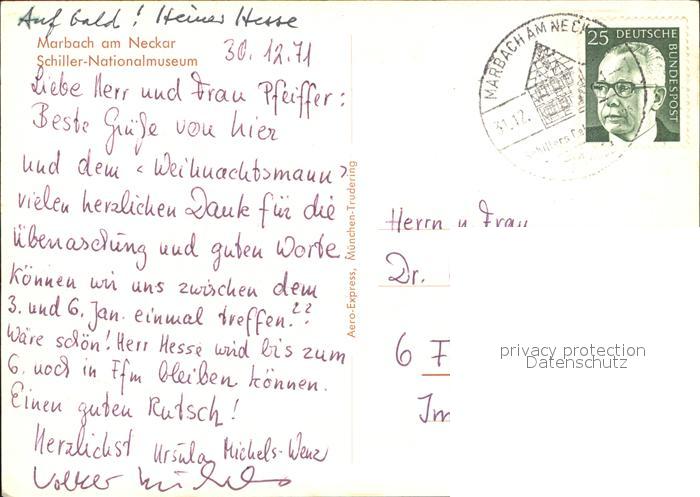 Auf bald! Heiner Hesse
Marbach am Neckar
Schiller-Nationalmuseum
30.12.71
Liebe Herr und Frau Pfeiffer:
Beste Grüße von hier
und dem "Weihnachtsmann"
vielen herzlichen Dank für die
Überraschung und guten Worte
Können wir uns zwischen dem
3. und 6. Jan. einmal treffen??
Wäre schön! Herr Hesse wird bis zum
6. noch in Ffm bleiben können.
Einen guten Rutsch!
Herzlichst Ursula Michels-Wenz
Volker Michels
Aero-Express, München-Trudering
MARBACH AM NECK
31.12.
Schillers
25 DEUTSCHE
BUNDESPOST
Herrn u. Frau
Dr.
6 F
Im
privacy protection
Datenschutz